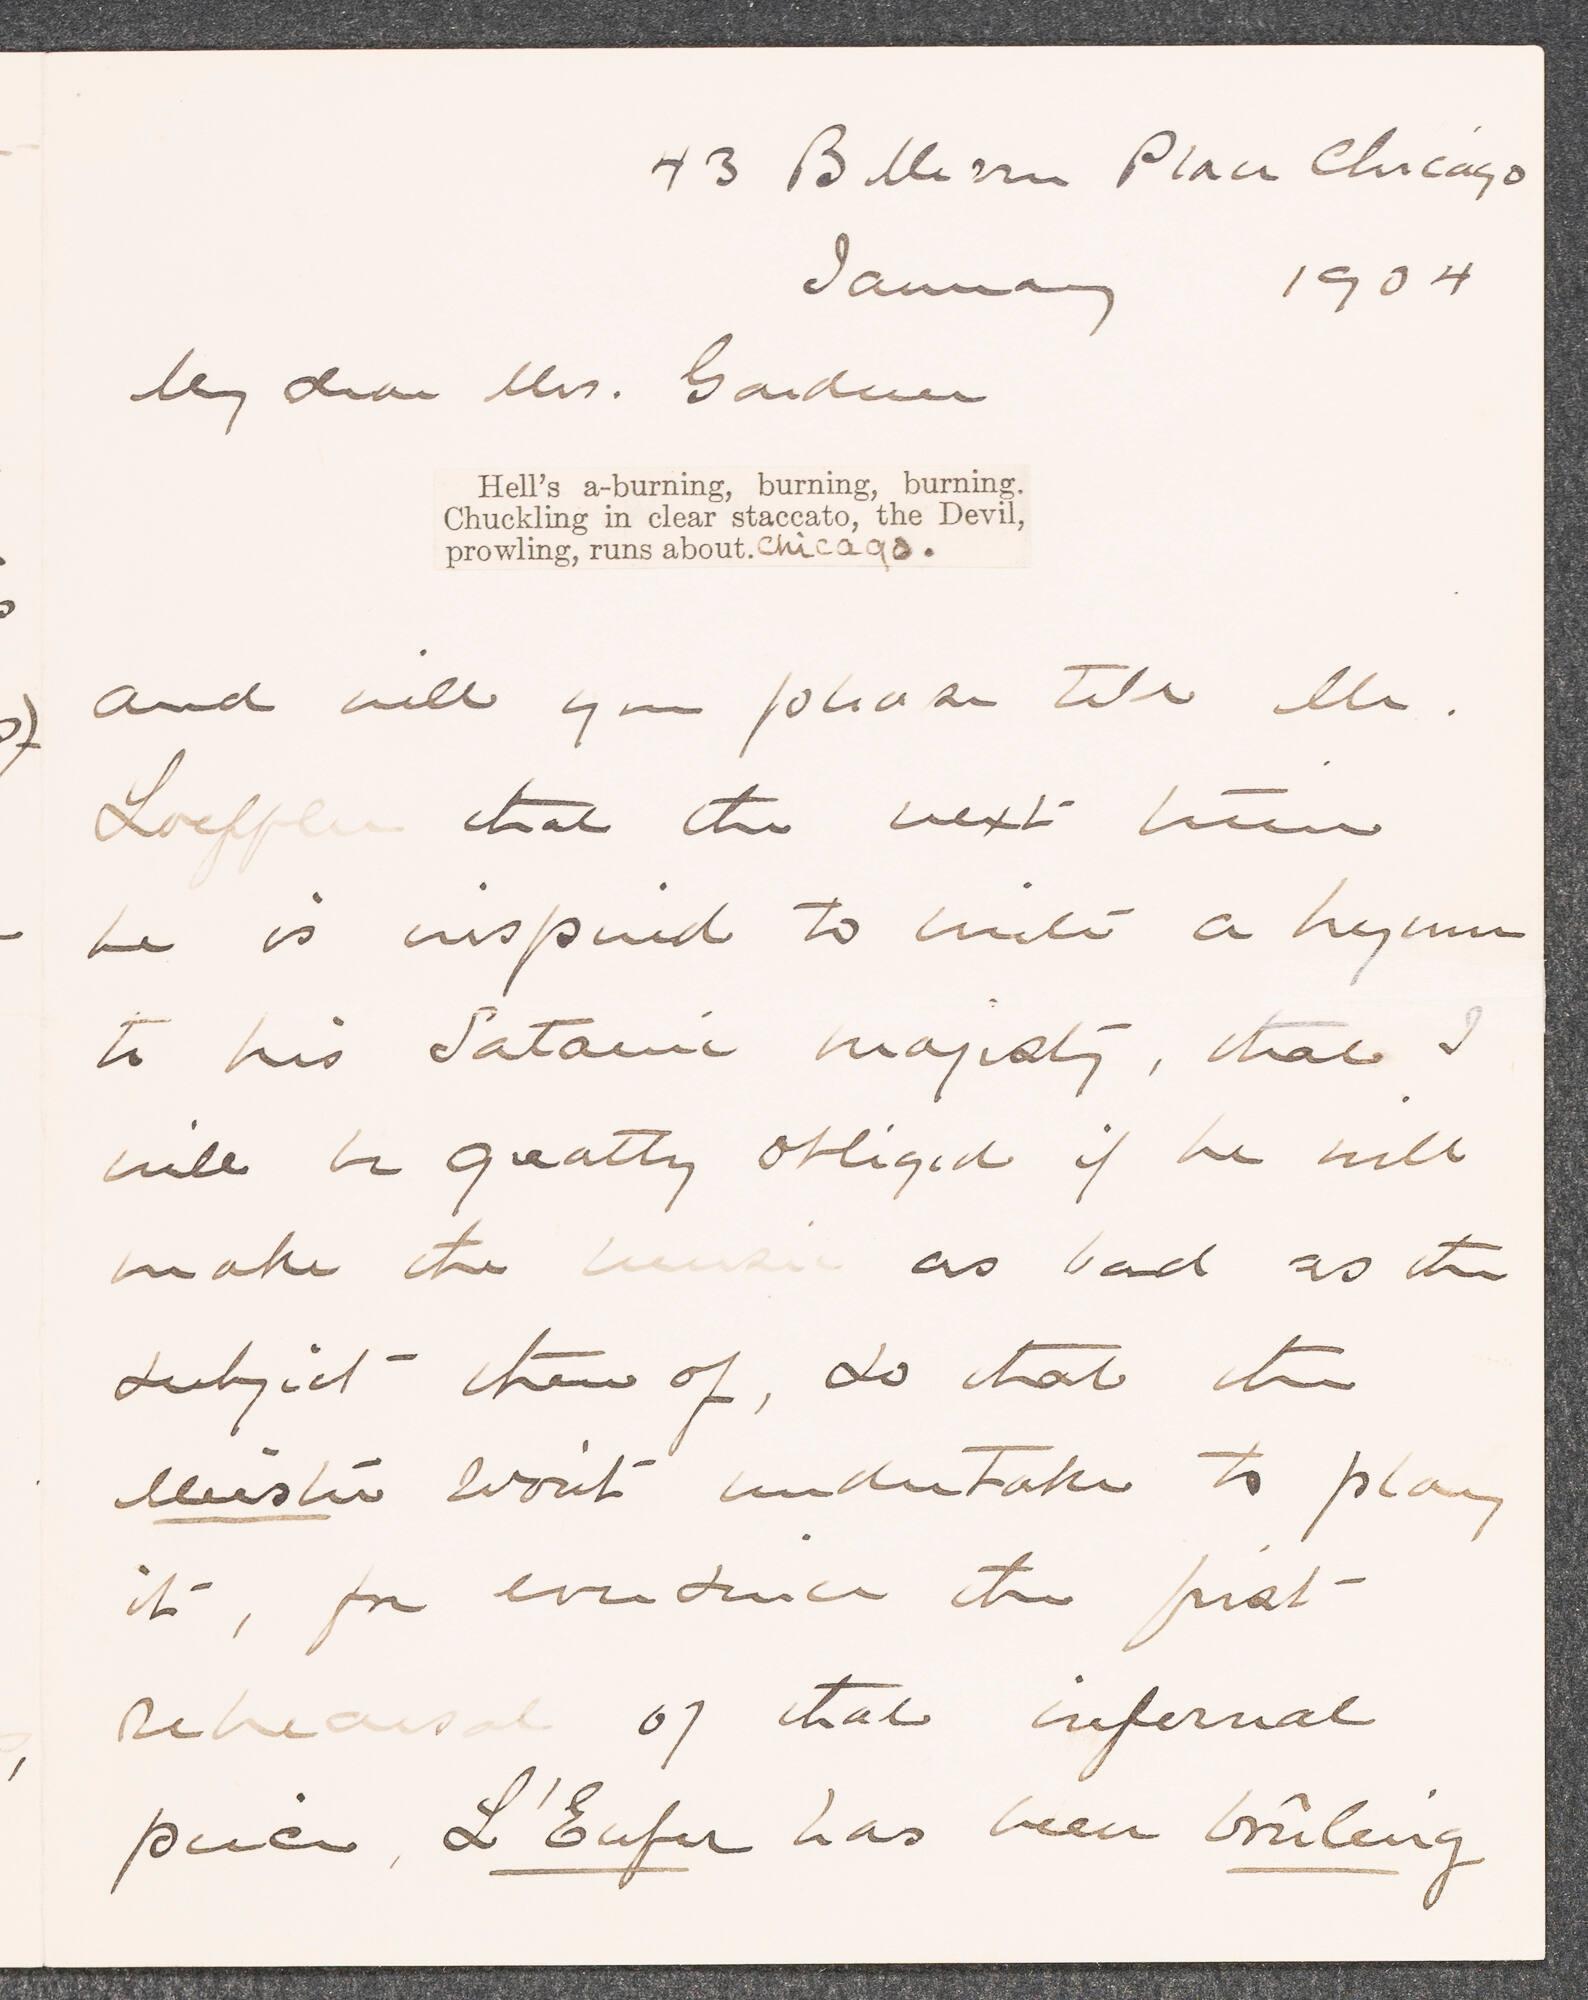 43 Bellevue Place Chicago
January 1904
My dear Mrs. Gardner
Hell's a-burning, burning, burning.
Chuckling in clear staccato, the Devil,
prowling, runs about. Chicago.
and will you please tell Mr.
Loeffler that the next time
he is inspired to write a hymn
to his Satanic majesty, that I
will be greatly obliged if he will
make the music as bad as the
subject there of, so that the
Meister won't undertake to play
it, for ever since the first
rehearsal of that infernal
piece, L'Enfer has been brûleing